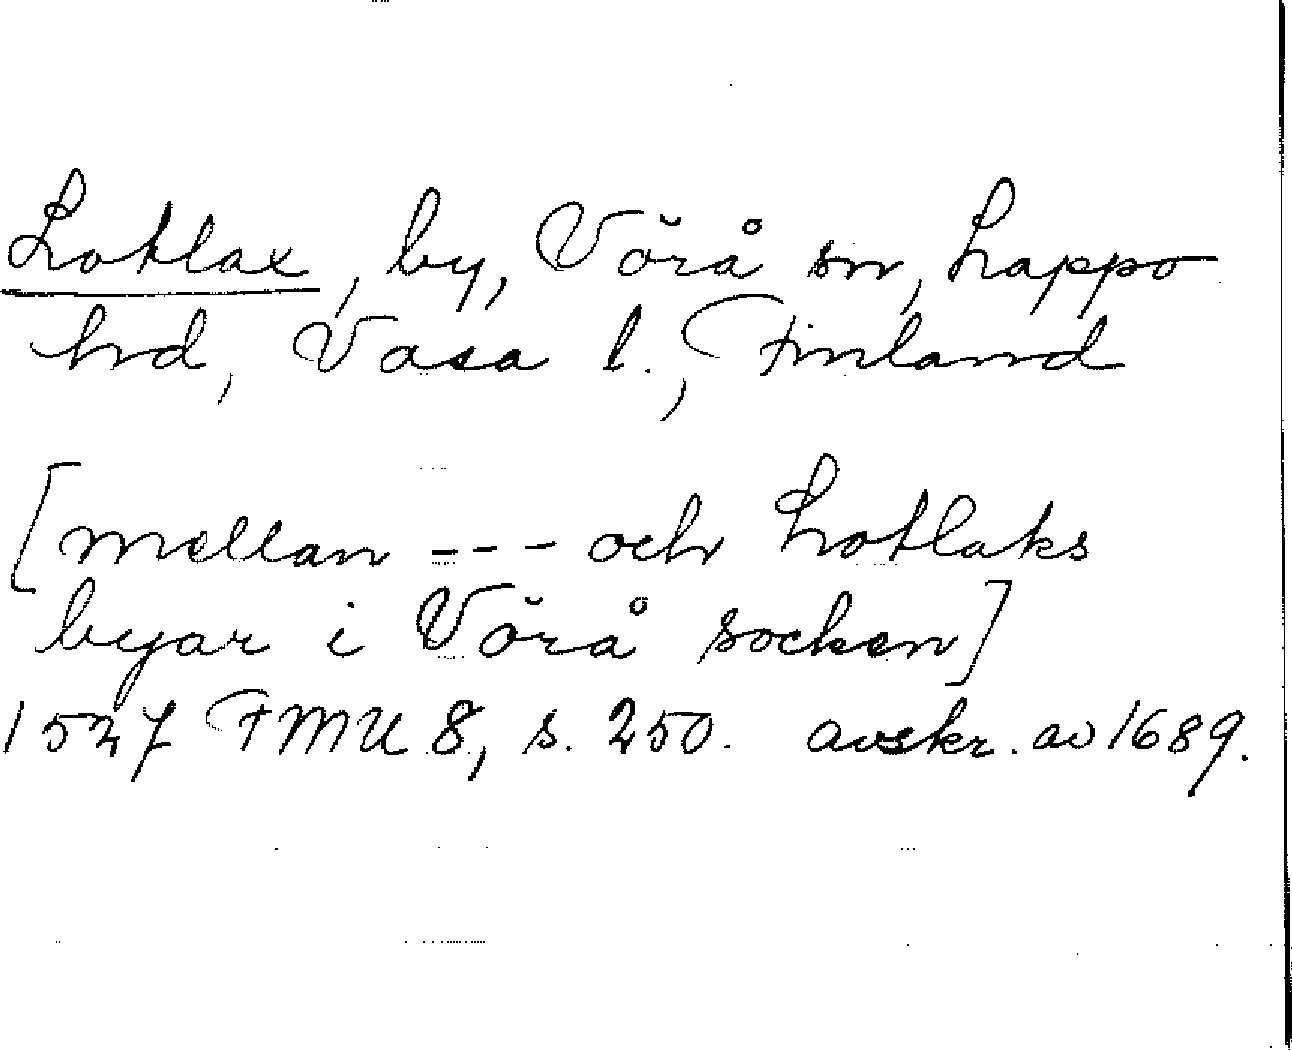 Lotlax, by, Vörå sn, Lappo
hrd, Vasa l., Finland
[mellan --- och Lotlaks
byar i Vörå socken]
1527 FMU 8, s. 250. avskr. av 1689.